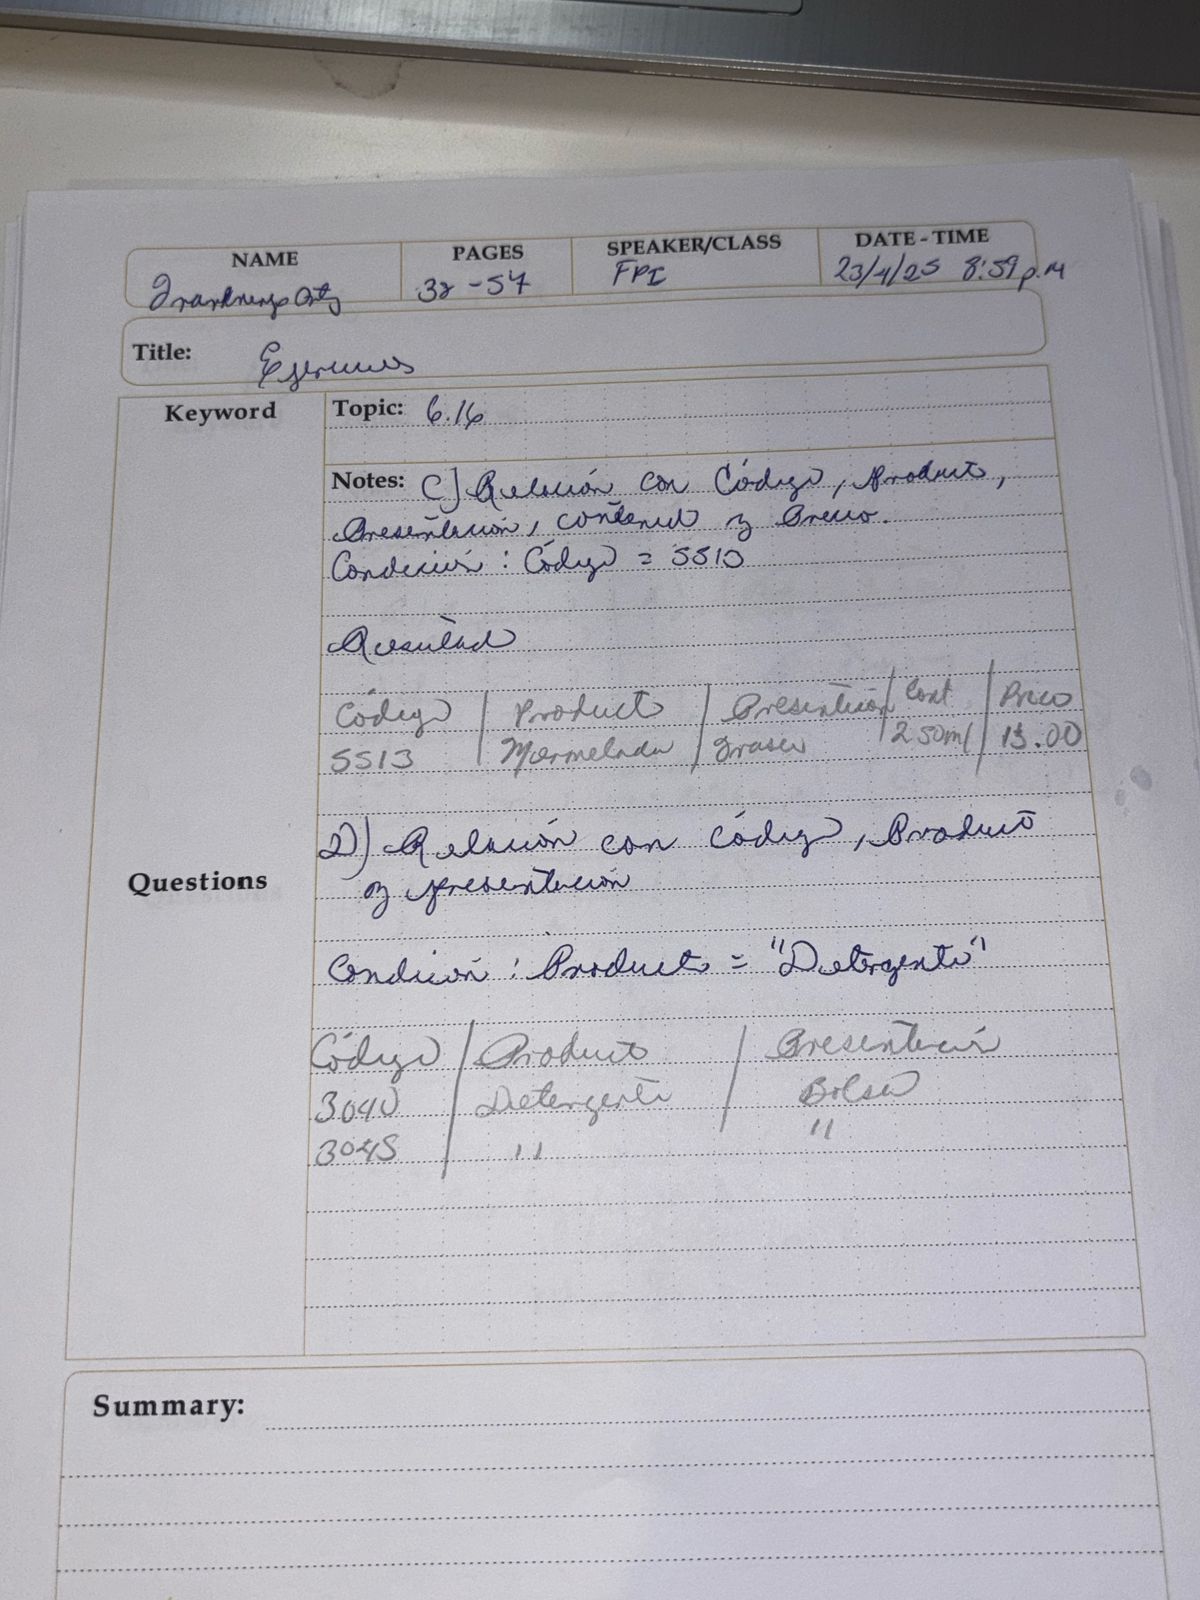 NAME PAGES SPEAKER/CLASS DATE-TIME
32-57 FPI 23/4/25 8:59 p.m
Title: Ejercicios
Keyword
Topic: 6.16
Notes: C) Relación con Código, Producto,
Presentación, contenido y Precio.
Condición: Código = 5513
Resultado
Código | Producto | Presentación | Cont | Precio
5513 | Mermelada | Frasco | 250ml | 13.00
D) Relación con código, Producto
Questions
y presentación
Condición: Producto = "Detergente"
Código | Producto | Presentación
3040 | Detergente | Bolsa
3045 | " | "
Summary: